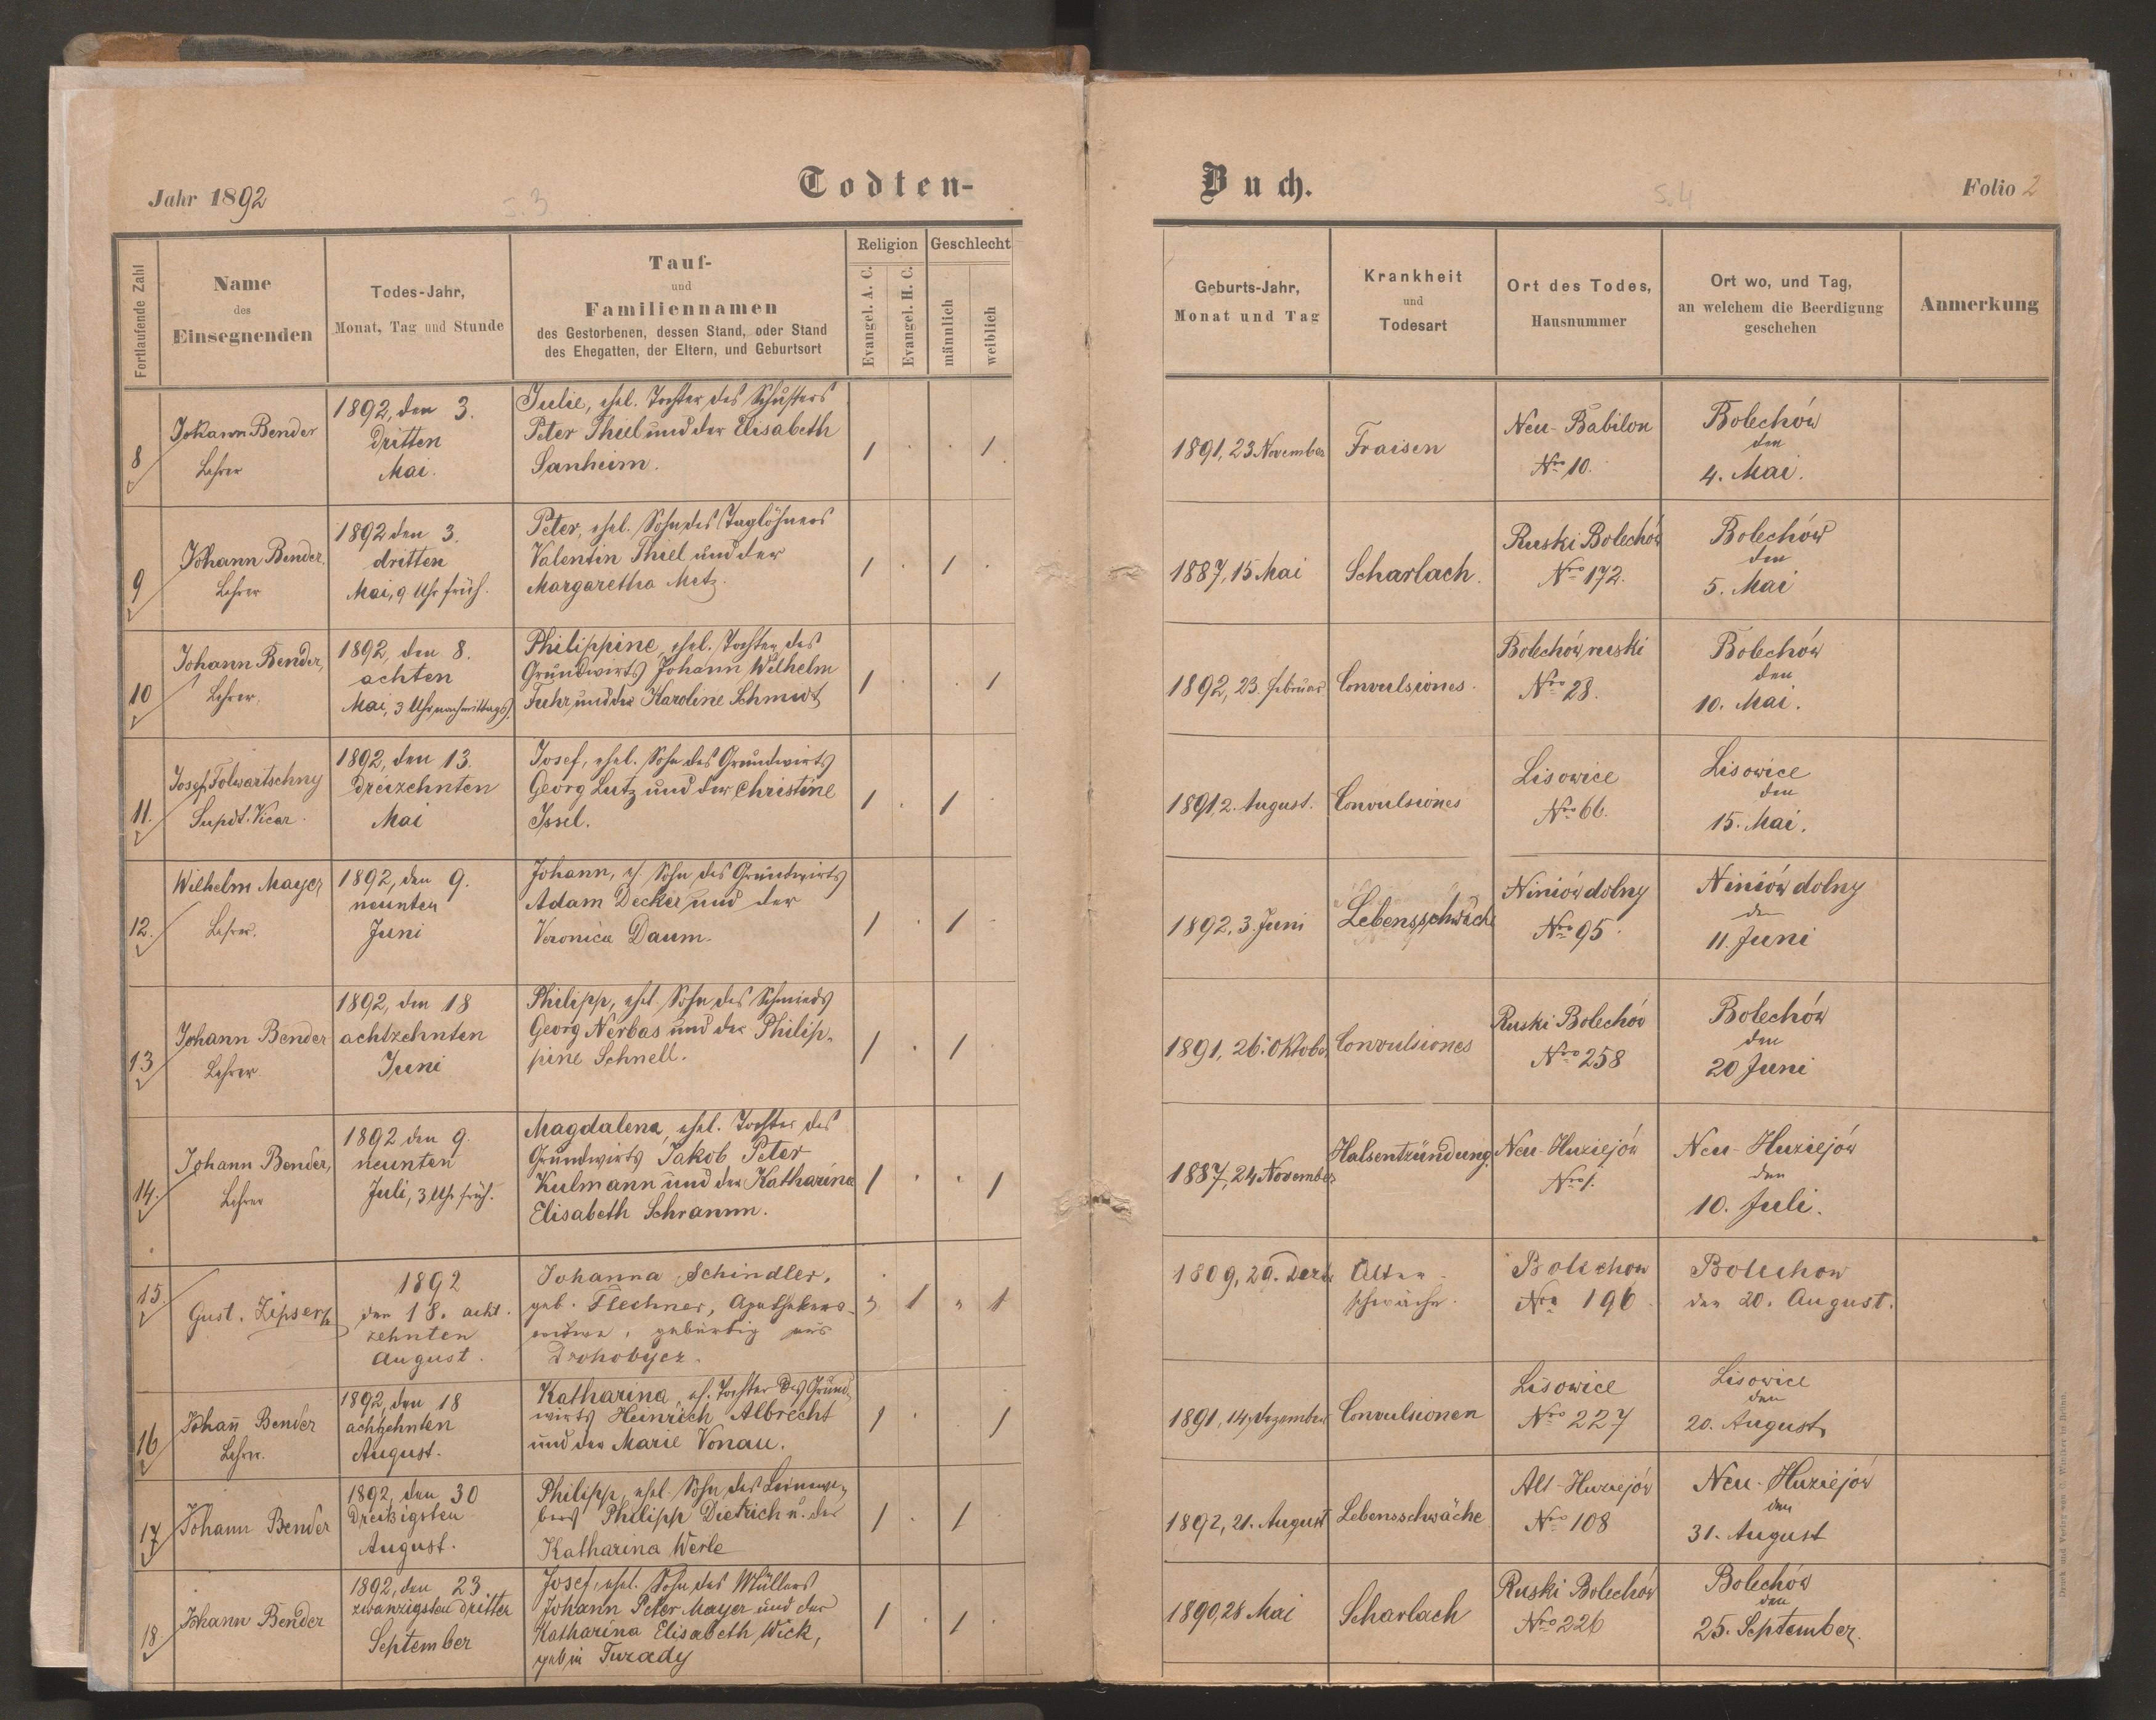 Jahr 1892
s. 3
Todten-
Buch.
s. 4
Folio 2
Fortlaufende Zahl
Name
des
Einsegnenden
Todes-Jahr,
Monat, Tag und Stunde
Tauf-
und
Familiennamen
des Gestorbenen, dessen Stand, oder Stand
des Ehegatten, der Eltern, und Geburtsort
Religion
Evangel. A. C.
Evangel. H. C.
Geschlecht
männlich
weiblich
Geburts-Jahr,
Monat und Tag
Krankheit
und
Todesart
Ort des Todes,
Hausnummer
Ort wo, und Tag,
an welchem die Beerdigung
geschehen
Anmerkung
8
Johann Bender
Lehrer
1892, den 3.
Dritten
Mai.
Julie, ehel. Tochter des Schusters
Peter Thiel und der Elisabeth
Sanheim.
1 . . 1
1891, 23 November
Fraisen
Neu-Babilon
Nro 10.
Bolechów
den
4. Mai.
9
Johann Bender.
Lehrer
1892 den 3.
dritten
Mai, 9 Uhr früh.
Peter, ehel. Sohn des Taglöhners
Valentin Thiel und der
Margaretha Metz.
1 . 1 .
1887, 15 Mai
Scharlach.
Ruski Bolechów
Nro 172.
Bolechów
den
5. Mai
10
Johann Bender,
Lehrer.
1892, den 8.
achten
Mai, 3 Uhr nachmittags.
Philippine, ehel. Tochter des
Grundwirts Johann Wilhelm
Fuhr und der Karoline Schmidt
1 . . 1
1892, 23. Februar
Convulsiones.
Bolechów ruski
Nro 28.
Bolechów
den
10. Mai.
11.
Josef Folwartschny
Supdt. Vicar.
1892, den 13.
Dreizehnten
Mai
Josef, ehel. Sohn des Grundwirts
Georg Lutz und der Christine
Issel.
1 . 1 .
1891, 2. August.
Convulsiones
Lisowice
Nro 66.
Lisowice
den
15. Mai.
12.
Wilhelm Mayer
Lehrer.
1892, den 9.
neunten
Juni
Johann, e. Sohn des Grundwirts
Adam Decker und der
Veronica Daum.
1 . 1 .
1892, 3. Juni
Lebensschwäche
Niniów dolny
Nro 95.
Niniów dolny
den
11. Juni
13
Johann Bender
Lehrer
1892, den 18
achtzehnten
Juni
Philipp, ehel. Sohn des Schmieds
Georg Nerbas und der Philip-
pine Schnell.
1 . 1 .
1891, 26. Oktober
Convulsiones
Ruski Bolechów
Nro 258
Bolechów
den
20 Juni
14.
Johann Bender,
Lehrer
1892 den 9.
neunten
Juli, 3 Uhr früh.
Magdalena, ehel. Tochter des
Grundwirts Jakob Peter
Kulmann und der Katharina
Elisabeth Schramm.
1 . . 1
1887, 24 November
Halsentzündung.
Neu-Huziejów
Nro 1.
Neu-Huziejów
den
10. Juli.
15.
Gust. Zipser
1892
den 18. acht-
zehnten
August.
Johanna Schindler,
geb. Flechner, Apothekers-
witwe, gebürtig aus
Drohobycz.
" 1 " 1
1809, 29. Dezbr
Alters-
schwäche.
Bolechow
Nro 196.
Bolechow
den 20. August.
16
Johañ Bender
Lehrer.
1892, den 18
achtzehnten
August.
Katharina, eh. Tochter des Grund-
wirts Heinrich Albrecht
und der Marie Vonau.
1 . 1
1891, 14. Dezember
Convulsionen
Lisowice
Nro 227
Lisowice
den
20. August
17
Johann Bender
1892, den 30
Dreißigsten
August.
Philipp, ehel. Sohn des Leinwe-
bers Philipp Dietrich u. der
Katharina Werle
1 . 1 .
1892, 21. August
Lebensschwäche
Alt-Huziejów
Nro 108
Neu-Huziejów
den
31. August
18.
Johann Bender
1892, den 23.
zwanzigsten dritter
September
Josef, ehel. Sohn des Müllers
Johann Peter Mayer und der
Katharina Elisabeth Wick,
geb in Turady
1 . 1 .
1890, 28 Mai
Scharlach
Ruski Bolechów
Nro 226
Bolechów
den
25. September.